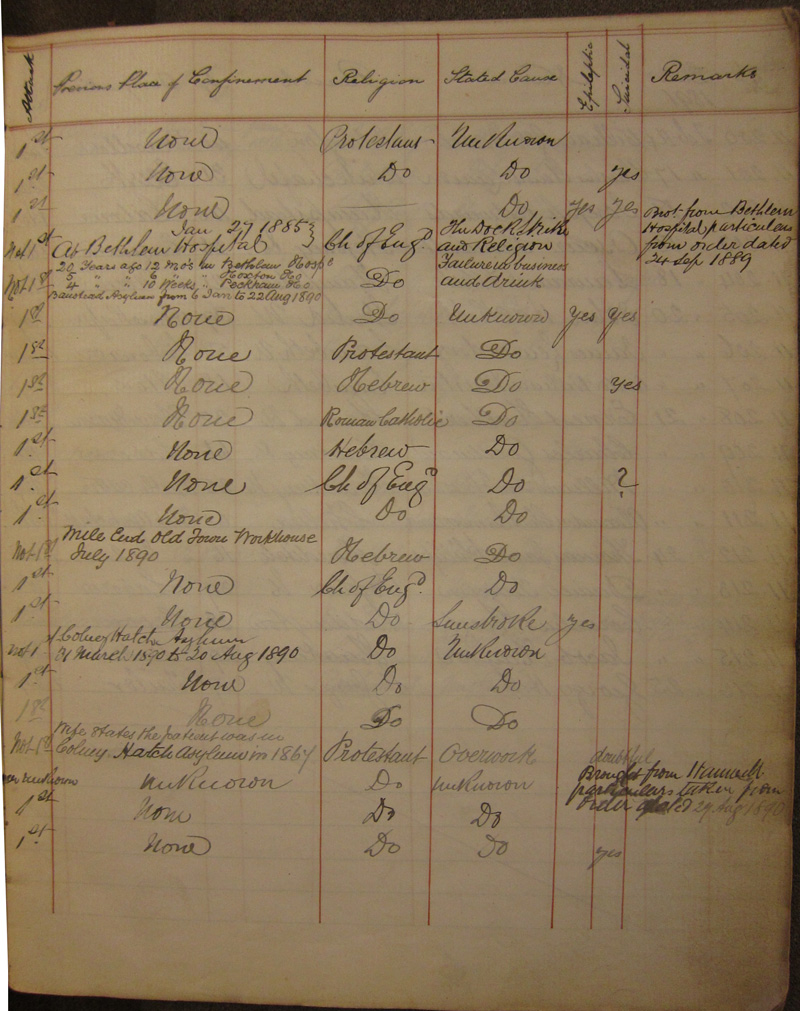 Attack Previous Place of Confinement Religion Stated Cause Epileptic Suicidal Remarks
1st None Protestant Unknown
1st None Do Do yes
1st None Do yes yes Brot. from Bethlem
Jan 27 1885 The Dock Strike Hospital particulars
Not 1st At Bethlem Hospital Ch of Engd. and Religion from order dated
20 Years ago 12 Mos in Bethlem Hosp Failure in business 24 Sep 1889
5 " " 6 " " Hoxton Ho
Not 1st 4 " " 10 Weeks " Peckham Ho Do and drink
Banstead Asylum from 6 Jan to 22 Aug 1890
1st None Do Unknown Yes Yes
1st None Protestant Do
1st None Hebrew Do yes
1st None Roman Catholic Do
1st None Hebrew Do
1st None Ch of Engd Do ?
1st None Do Do
Mile End Old Town Workhouse
Not 1st July 1890 Hebrew Do
1st None Ch of Engd. Do
1st None Do Sunstroke yes
Colney Hatch Asylum
Not 1st March 1890 to 20 Aug 1890 Do Unknown
1st None Do Do
1st None Do Do
Wife states the patient was in
Not 1st Colney Hatch Asylum in 1867 Protestant Overwork doubtful
unknown unknown Do unknown Brought from
particulars taken from
1st None Do Do order dated 29 Aug 1890
1st None Do Do yes